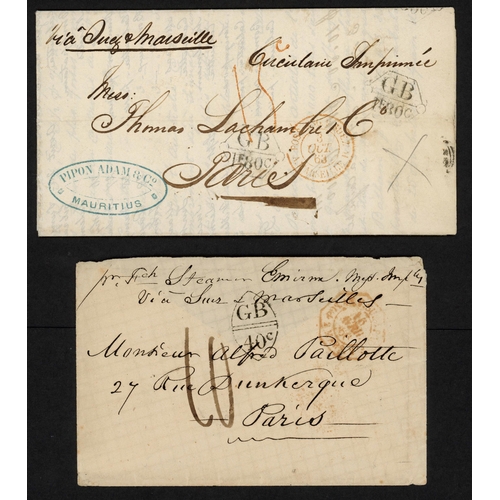 viâ Suez & Marseille
Circulaire Imprimée
GB
1F60c
Mess:
Thomas Lachambre & Co
GB
1F60c
Paris
PIPON ADAM & Co.
MAURITIUS
pr. Fch Steamer Emirne
Viâ Suez & Marseilles
GB
40c
Monsieur Alfred Paillotte
27 Rue Dunkerque
Paris